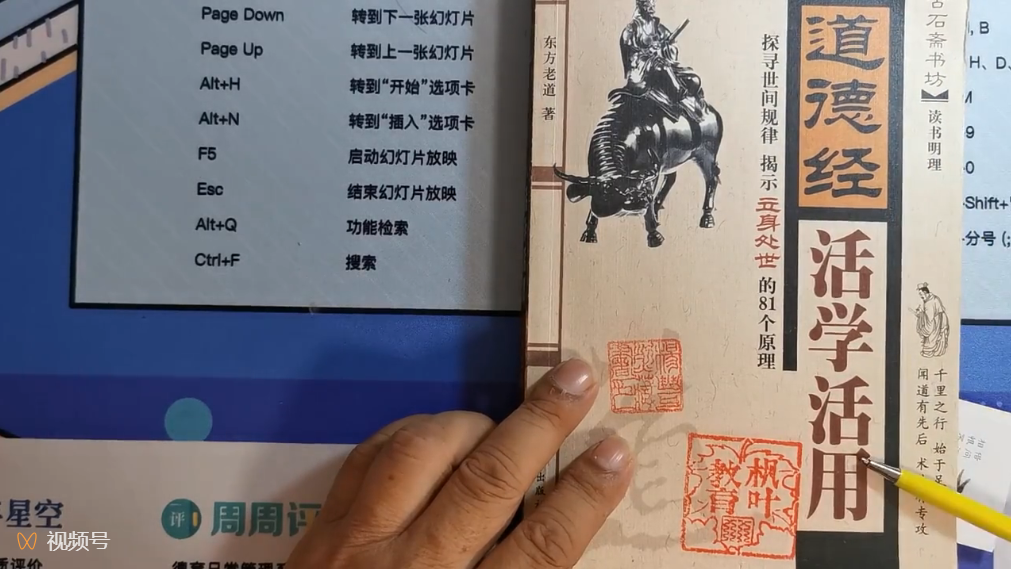 Page Down 转到下一张幻灯片
Page Up 转到上一张幻灯片
Alt+H 转到“开始”选项卡
Alt+N 转到“插入”选项卡
F5 启动幻灯片放映
Esc 结束幻灯片放映
Alt+Q 功能检索
Ctrl+F 搜索
星空
评
周周评
视频号
东方老道 著
道德经
活学活用
探寻世间规律 揭示立身处世的81个原理
枫叶
教育
石斋书坊
读书明理
千里之行 始于
闻道有先后 术
专攻
B
H、D、
9
Shift+
分号(;